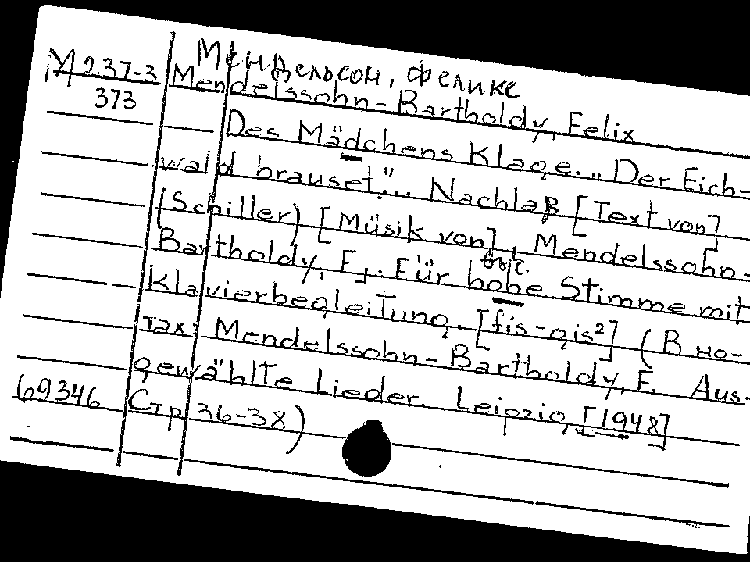 Мендельсон, Феликс
М 237-3 Mendelssohn-Bartholdy, Felix
373 Des Mädchens Klage. „Der Eich-
wald brauset"... Nachlaß [Text von]
(Schiller) [Musik von] Mendelssohn-
Bartholdy, F. Für hohe Stimme mit
Klavierbegleitung. [fis-gis²] (В но-
тах: Mendelssohn-Bartholdy, F. Aus-
gewählte Lieder. Leipzig, [1948]
69346 Стр. 36-38)